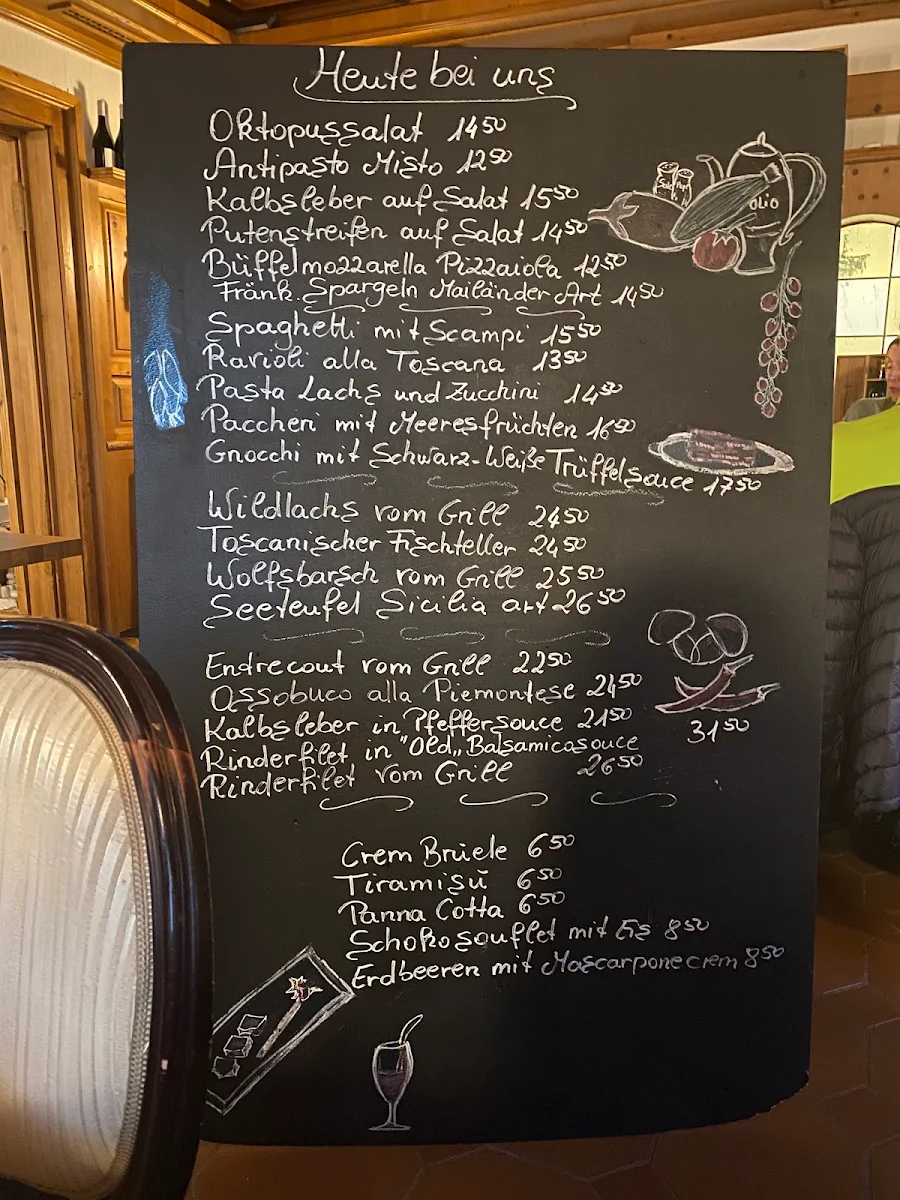 Heute bei uns
Oktopussalat 14⁵⁰
Antipasto Misto 12⁵⁰
Kalbsleber auf Salat 15⁵⁰
Putenstreifen auf Salat 14⁵⁰
Büffelmozzarella Pizzaiola 12⁵⁰
Fränk. Spargeln Mailänder Art 14⁵⁰
Spaghetti mit Scampi 15⁵⁰
Ravioli alla Toscana 13⁵⁰
Pasta Lachs und Zucchini 14⁵⁰
Paccheri mit Meeresfrüchten 16⁵⁰
Gnocchi mit Schwarz-Weiße Trüffelsauce 17⁵⁰
Wildlachs vom Grill 24⁵⁰
Toscanischer Fischteller 24⁵⁰
Wolfsbarsch vom Grill 25⁵⁰
Seeteufel Sicilia art 26⁵⁰
Entrecout vom Grill 22⁵⁰
Ossobuco alla Piemontese 24⁵⁰
Kalbsleber in Pfeffersouce 21⁵⁰
Rinderfilet in "Old" Balsamicosouce 31⁵⁰
Rinderfilet vom Grill 26⁵⁰
Crem Brüele 6⁵⁰
Tiramisú 6⁵⁰
Panna Cotta 6⁵⁰
Schokosouflet mit Eis 8⁵⁰
Erdbeeren mit Mascarponecrem 8⁵⁰
OLIO